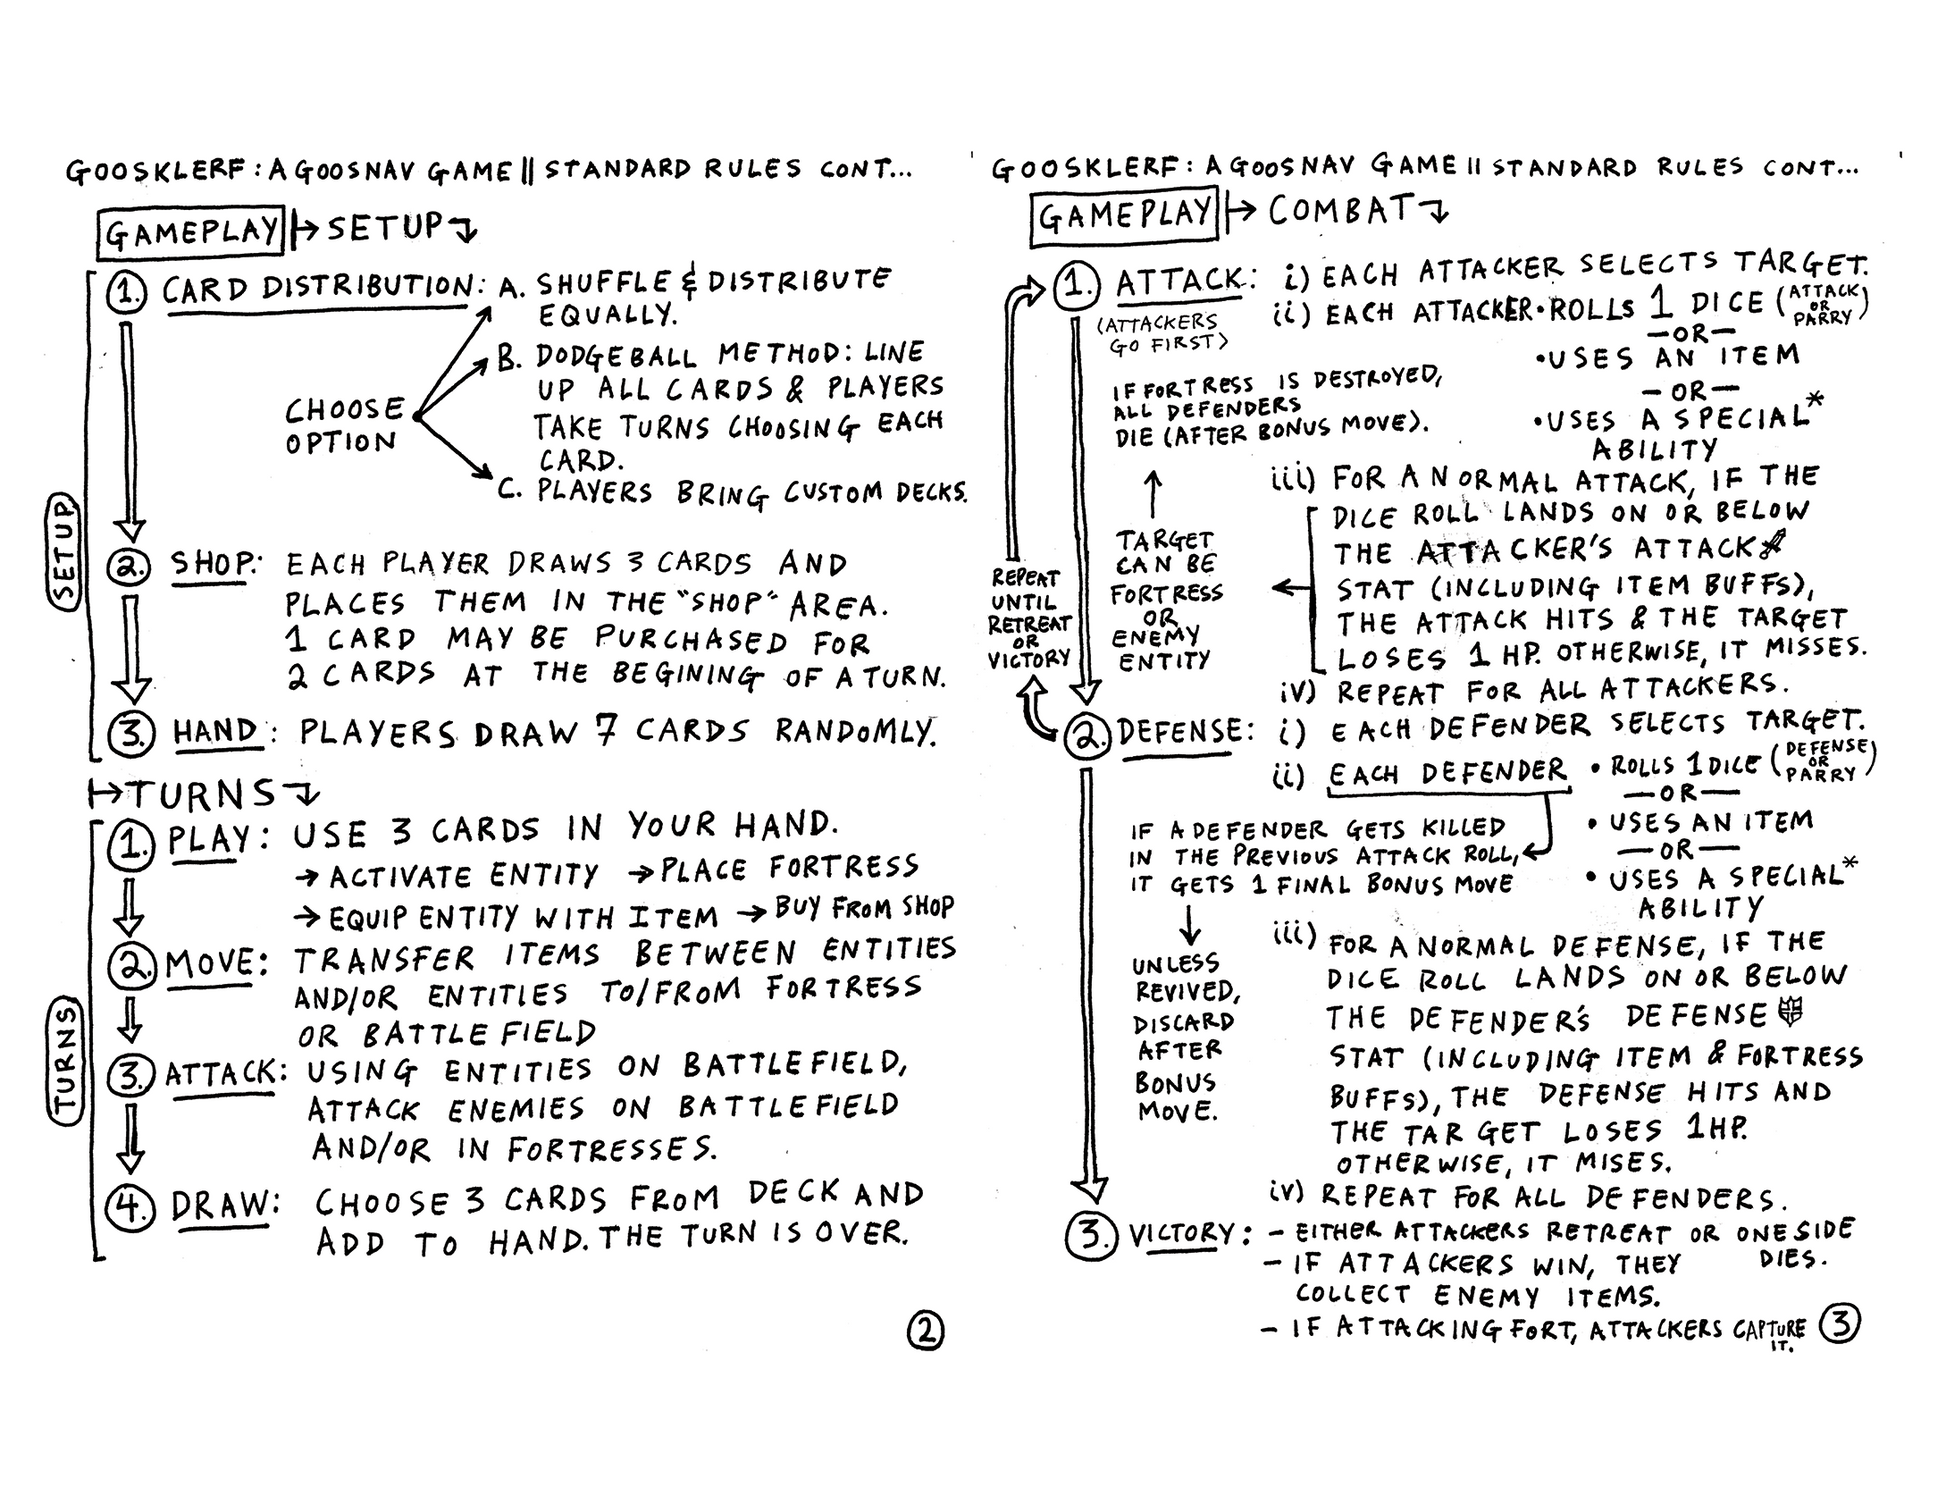 GOOSKLERF: A GOOSNAV GAME || STANDARD RULES CONT...
GAMEPLAY → SETUP
SETUP
1. CARD DISTRIBUTION: A. SHUFFLE & DISTRIBUTE
EQUALLY.
B. DODGEBALL METHOD: LINE
UP ALL CARDS & PLAYERS
TAKE TURNS CHOOSING EACH
CARD.
C. PLAYERS BRING CUSTOM DECKS.
CHOOSE
OPTION
2. SHOP: EACH PLAYER DRAWS 3 CARDS AND
PLACES THEM IN THE "SHOP" AREA.
1 CARD MAY BE PURCHASED FOR
2 CARDS AT THE BEGINING OF A TURN.
3. HAND: PLAYERS DRAW 7 CARDS RANDOMLY.
→ TURNS
TURNS
1. PLAY: USE 3 CARDS IN YOUR HAND.
→ ACTIVATE ENTITY → PLACE FORTRESS
→ EQUIP ENTITY WITH ITEM → BUY FROM SHOP
2. MOVE: TRANSFER ITEMS BETWEEN ENTITIES
AND/OR ENTITIES TO/FROM FORTRESS
OR BATTLEFIELD
3. ATTACK: USING ENTITIES ON BATTLEFIELD,
ATTACK ENEMIES ON BATTLEFIELD
AND/OR IN FORTRESSES.
4. DRAW: CHOOSE 3 CARDS FROM DECK AND
ADD TO HAND. THE TURN IS OVER.
2
GOOSKLERF: A GOOSNAV GAME || STANDARD RULES CONT...
GAMEPLAY → COMBAT
1. ATTACK: i) EACH ATTACKER SELECTS TARGET.
(ATTACKERS
GO FIRST)
ii) EACH ATTACKER • ROLLS 1 DICE (ATTACK
OR
PARRY)
—OR—
• USES AN ITEM
—OR—
• USES A SPECIAL*
ABILITY
iii) FOR A NORMAL ATTACK, IF THE
DICE ROLL LANDS ON OR BELOW
THE ATTACKER'S ATTACK
STAT (INCLUDING ITEM BUFFS),
THE ATTACK HITS & THE TARGET
LOSES 1 HP. OTHERWISE, IT MISSES.
iv) REPEAT FOR ALL ATTACKERS.
IF FORTRESS IS DESTROYED,
ALL DEFENDERS
DIE (AFTER BONUS MOVE).
TARGET
CAN BE
FORTRESS
OR
ENEMY
ENTITY
REPEAT
UNTIL
RETREAT
OR
VICTORY
2. DEFENSE: i) EACH DEFENDER SELECTS TARGET.
ii) EACH DEFENDER • ROLLS 1 DICE (DEFENSE
OR
PARRY)
—OR—
• USES AN ITEM
—OR—
• USES A SPECIAL*
ABILITY
IF A DEFENDER GETS KILLED
IN THE PREVIOUS ATTACK ROLL,
IT GETS 1 FINAL BONUS MOVE
UNLESS
REVIVED,
DISCARD
AFTER
BONUS
MOVE.
iii) FOR A NORMAL DEFENSE, IF THE
DICE ROLL LANDS ON OR BELOW
THE DEFENDER'S DEFENSE
STAT (INCLUDING ITEM & FORTRESS
BUFFS), THE DEFENSE HITS AND
THE TARGET LOSES 1HP.
OTHERWISE, IT MISES.
iv) REPEAT FOR ALL DEFENDERS.
3. VICTORY: - EITHER ATTACKERS RETREAT OR ONE SIDE
DIES.
- IF ATTACKERS WIN, THEY
COLLECT ENEMY ITEMS.
- IF ATTACKING FORT, ATTACKERS CAPTURE
IT.
3